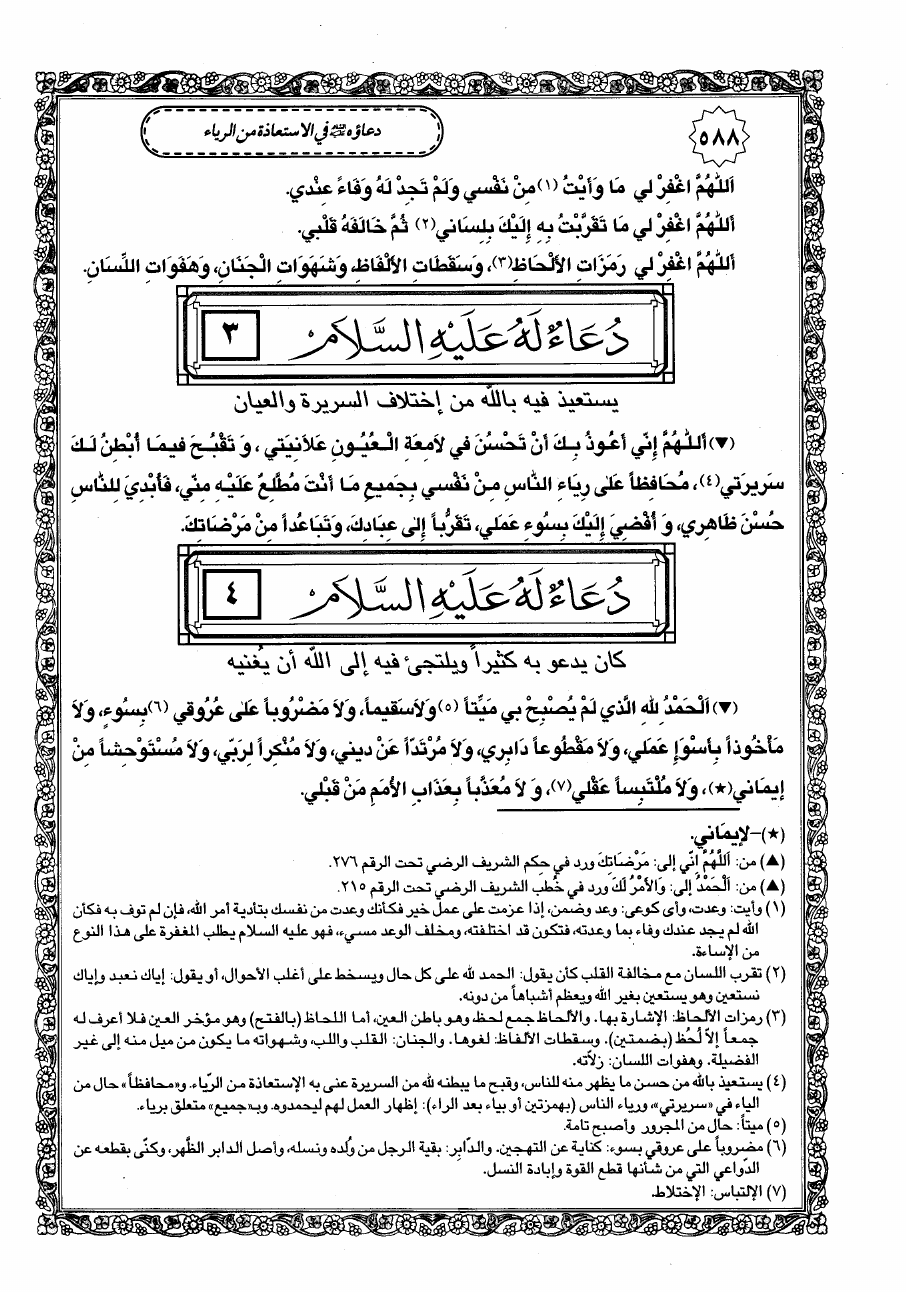 ٥٨٨
دعاؤه عليه السلام في الاستعاذة من الرياء
أَللّٰهُمَّ اغْفِرْ لي مَا وَأَيْتُ (١) مِنْ نَفْسي وَلَمْ تَجِدْ لَهُ وَفَاءً عِنْدي.
أَللّٰهُمَّ اغْفِرْ لي مَا تَقَرَّبْتُ بِهِ إِلَيْكَ بِلِسَاني (٢) ثُمَّ خَالَفَهُ قَلْبي.
أَللّٰهُمَّ اغْفِرْ لي رَمَزَاتِ الأَلْحَاظِ (٣)، وَسَقَطَاتِ الأَلْفَاظِ، وَشَهَوَاتِ الْجَنَانِ، وَهَفَوَاتِ اللِّسَانِ.
دُعَاءٌ لَهُ عَلَيْهِ السَّلَامُ
٣
يستعيذ فيه بالله من إختلاف السريرة والعيان
(▼) أَللّٰهُمَّ إِنّي أَعُوذُ بِكَ أَنْ تَحْسُنَ في لاَمِعَةِ الْعُيُونِ عَلاَنِيَتي، وَ تَقْبُحَ فيمَا أُبْطِنُ لَكَ
سَريرَتي (٤)، مُحَافِظاً عَلى رِيَاءِ النَّاسِ مِنْ نَفْسي بِجَميعِ مَا أَنْتَ مُطَّلِعٌ عَلَيْهِ مِنّي، فَأُبْدِيَ لِلنَّاسِ
حُسْنَ ظَاهِري، وَ أُفْضِيَ إِلَيْكَ بِسُوءِ عَمَلي، تَقَرُّباً إِلى عِبَادِكَ، وَتَبَاعُداً مِنْ مَرْضَاتِكَ.
دُعَاءٌ لَهُ عَلَيْهِ السَّلَامُ
٤
كان يدعو به كثيراً ويلتجئ فيه إلى الله أن يُغنيه
(▼) اَلْحَمْدُ لِلّٰهِ الَّذي لَمْ يُصْبِحْ بي مَيِّتاً (٥) وَلاَ سَقيماً، وَلاَ مَضْرُوباً عَلى عُرُوقي (٦) بِسُوءٍ، وَلاَ
مَأْخُوذاً بِأَسْوَإِ عَمَلي، وَلاَ مَقْطُوعاً دَابِري، وَلاَ مُرْتَدّاً عَنْ ديني، وَلاَ مُنْكِراً لِرَبّي، وَلاَ مُسْتَوْحِشاً مِنْ
إيمَاني (★)، وَلاَ مُلْتَبِساً عَقْلي (٧)، وَ لاَ مُعَذَّباً بِعَذَابِ الأُمَمِ مَنْ قَبْلي.
(★)-لإيمَاني.
(▲) من: اَللّٰهُمَّ إِنّي إلى: مَرْضَاتِكَ ورد في حكم الشريف الرضي تحت الرقم ٢٧٦.
(▲) من: اَلْحَمْدُ إلى: وَالأَمْرُ لَكَ ورد في خُطب الشريف الرضي تحت الرقم ٢١٥.
(١) وأيت: وعدت، وأى كوعى: وعد وضمن، إذا عزمت على عمل خير فكأنك وعدت من نفسك بتأدية أمر الله، فإن لم توف به فكأن
الله لم يجد عندك وفاء بما وعدته، فتكون قد اختلفته، ومخلف الوعد مسيء، فهو عليه السلام يطلب المغفرة على هذا النوع
من الإساءة.
(٢) تقرب اللسان مع مخالفة القلب كأن يقول: الحمد لله على كل حال ويسخط على أغلب الأحوال، أو يقول: إياك نعبد وإياك
نستعين وهو يستعين بغير الله ويعظم أشباهاً من دونه.
(٣) رمزات الألحاظ: الإشارة بها. والألحاظ جمع لحظ وهو باطن العين، أما اللحاظ (بالفتح) وهو مؤخر العين فلا أعرف له
جمعاً إلاّ لُحُظ (بضمتين). وسقطات الألفاظ: لغوها. والجنان: القلب واللب، وشهواته ما يكون من ميل منه إلى غير
الفضيلة. وهفوات اللسان: زلاّته.
(٤) يستعيذ بالله من حسن ما يظهر منه للناس، وقبح ما يبطنه لله من السريرة عنى به الإستعاذة من الرّياء. و«محافظاً» حال من
الياء في «سريرتي»، ورياء الناس (بهمزتين أو بياء بعد الراء): إظهار العمل لهم ليحمدوه. وبـ«جميع» متعلق برياء.
(٥) ميتاً: حال من المجرور وأصبح تامة.
(٦) مضروباً على عروقي بسوء: كناية عن التهجين. والدّابِر: بقية الرجل من وُلده ونسله، وأصل الدابر الظّهر، وكنّى بقطعه عن
الدّواعي التي من شأنها قطع القوة وإبادة النسل.
(٧) الإلتباس: الإختلاط.